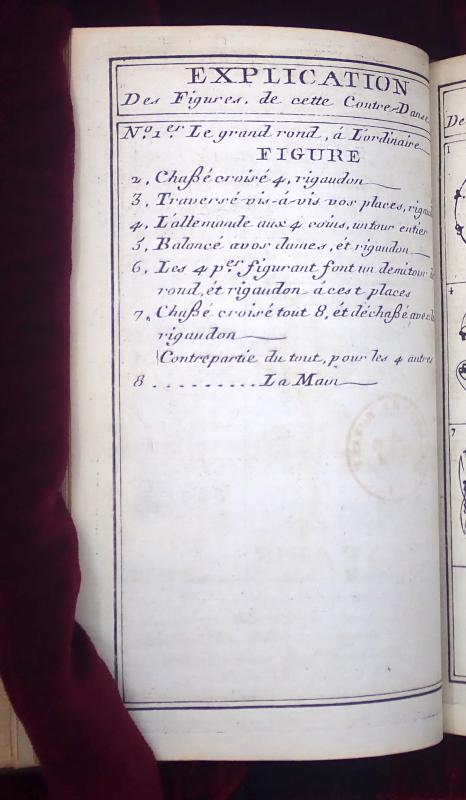 EXPLICATION
Des Figures, de cette Contre-Danse
Nº. 1er. Le grand rond, á L'ordinaire
FIGURE
2, Chaßé croisé 4, rigaudon
3, Traversé vis-á-vis vos places,
4, L'allemande aux 4 coins, un tour entier
5, Balancé avos dames, ét rigaudon
6, Les 4 pers. figurant font un demi tour
rond, ét rigaudon á cest places
7, Chaße croisé tout 8, ét déchaßé avec
rigaudon
Contrepartie du tout, pour les 4 autres
8 .......... La Main
De
1
4
7